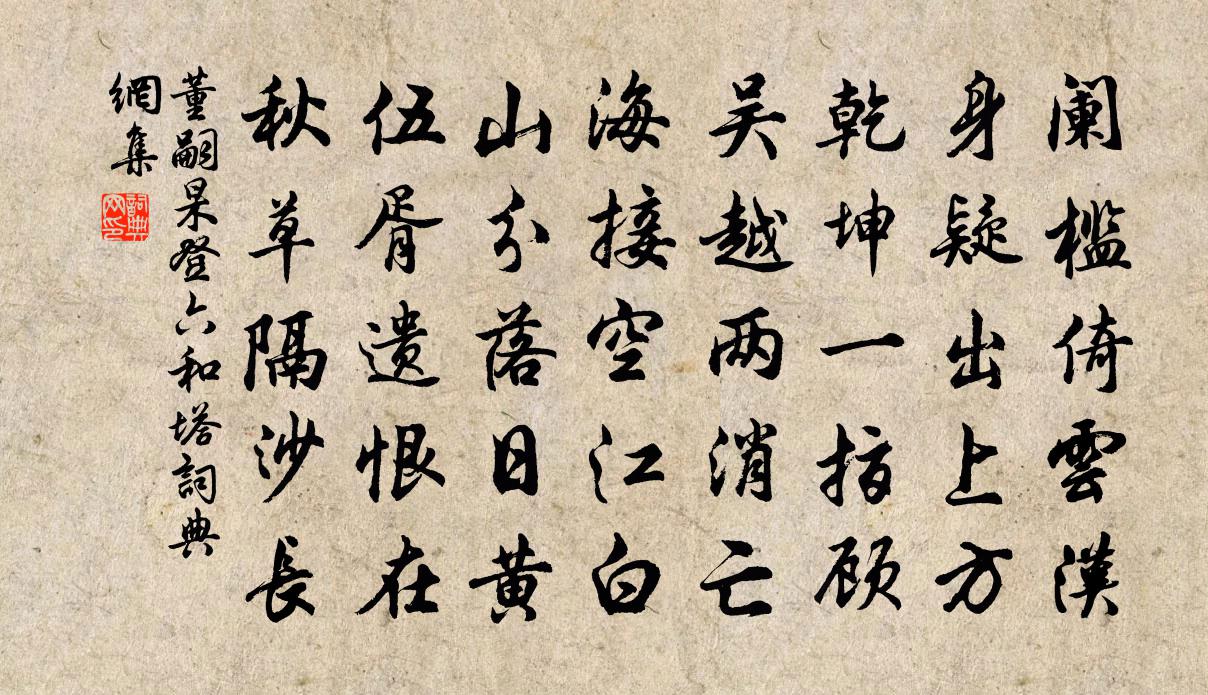 阑槛倚雲漢
身疑出上方
乾坤一指顾
吴越两消亡
海接空江白
山分落日黄
伍胥遗恨在
秋草隔沙長
董嗣杲登六和塔詞典
網集
詞典網印